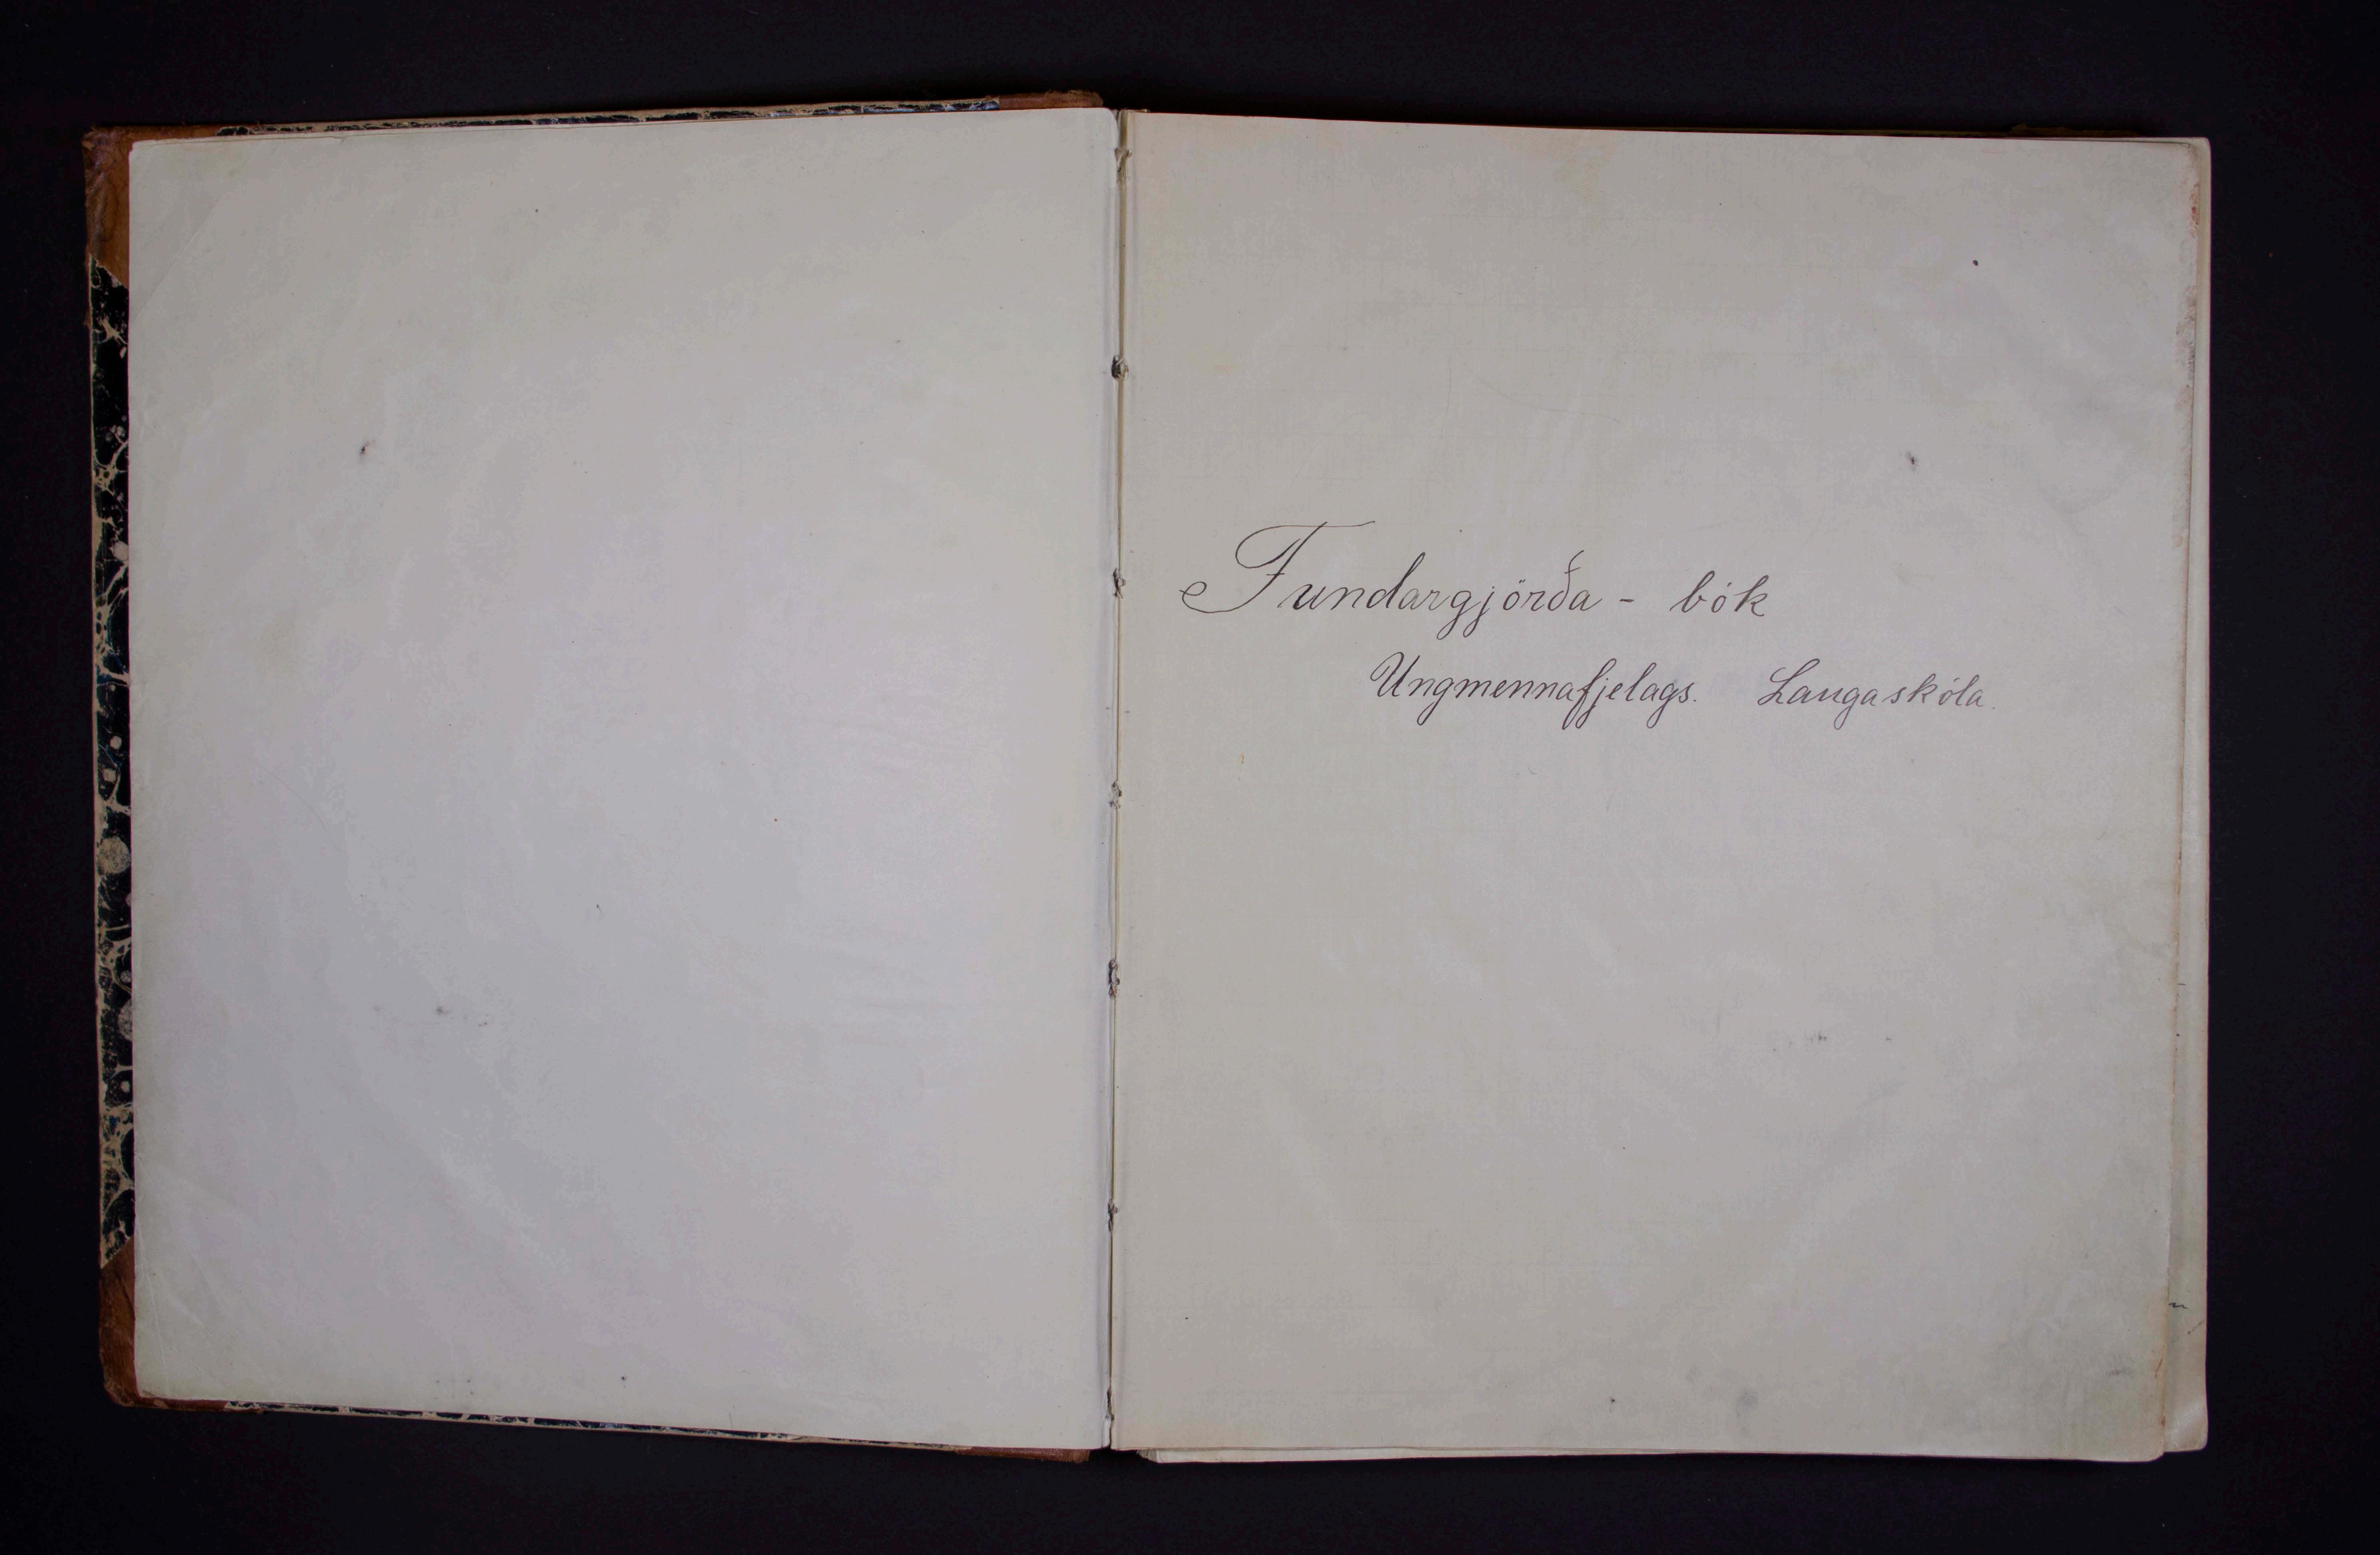 Fundargjörða - bók
Ungmennafjelags. Laugaskóla.